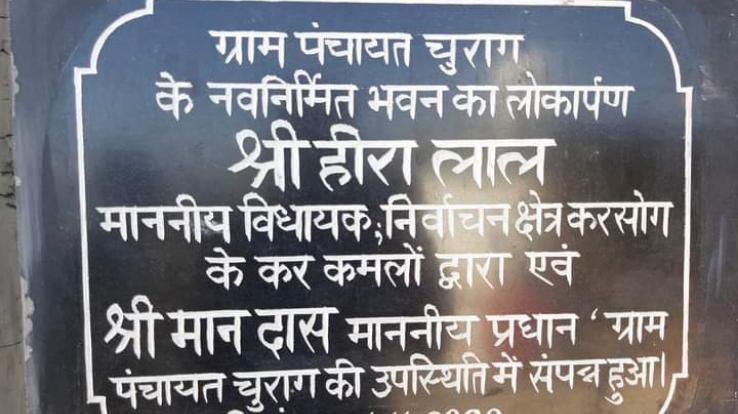 ग्राम पंचायत चुराग
के नवनिर्मित भवन का लोकार्पण
श्री हीरा लाल
माननीय विधायक,निर्वाचन क्षेत्र करसोग
के कर कमलों द्वारा एवं
श्री मान दास माननीय प्रधान ‘ ग्राम
पंचायत चुराग की उपस्थिति में संपन्न हुआ।